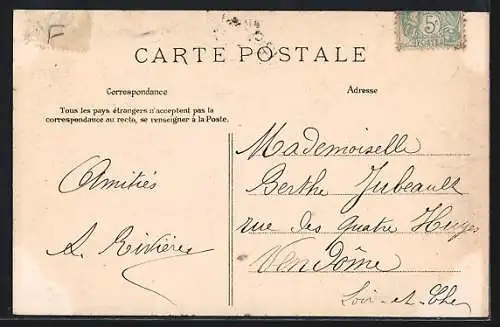 F
5c
POSTES
CARTE POSTALE
Correspondance
Tous les pays étrangers n'acceptent pas la
correspondance au recto, se renseigner à la Poste.
Amitiés
A. Rivière
Adresse
Mademoiselle
Berthe Jubeault
rue des quatre Huyes
Vendôme
Loir-et-Cher